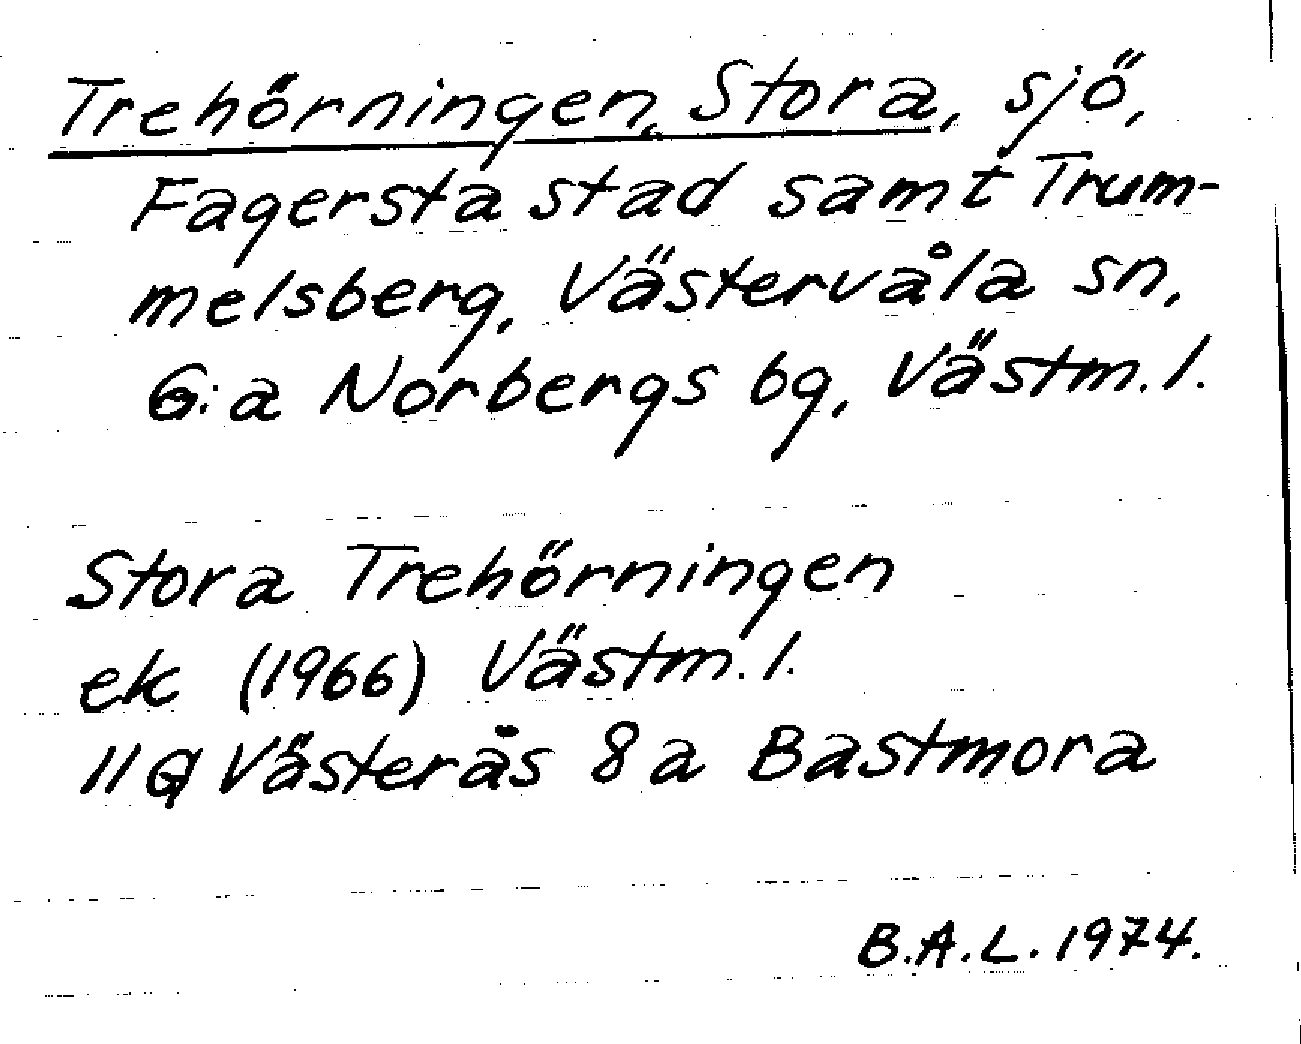 Trehörningen, Stora, sjö,
Fagersta stad samt Trum-
melsberg, Västervåla sn,
G:a Norbergs bg, Västm. l.
Stora Trehörningen
ek (1966) Västm. l.
11G Västerås 8a Bastmora
B.A.L. 1974.